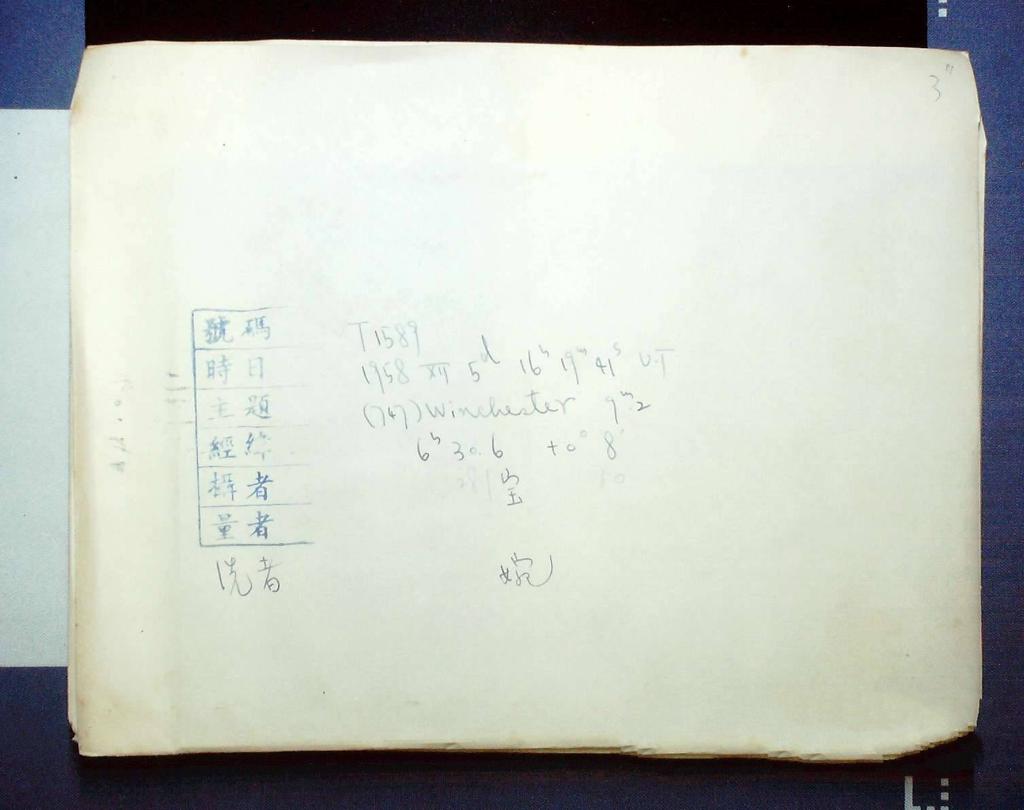 3"
號碼 T1589
時日 1958 XII 5d 16h 19m 41s UT
主題 (747) Winchester 9m.2
經緯 6h 30.6 +0° 8'
攝者 宝
量者
洗者 婉